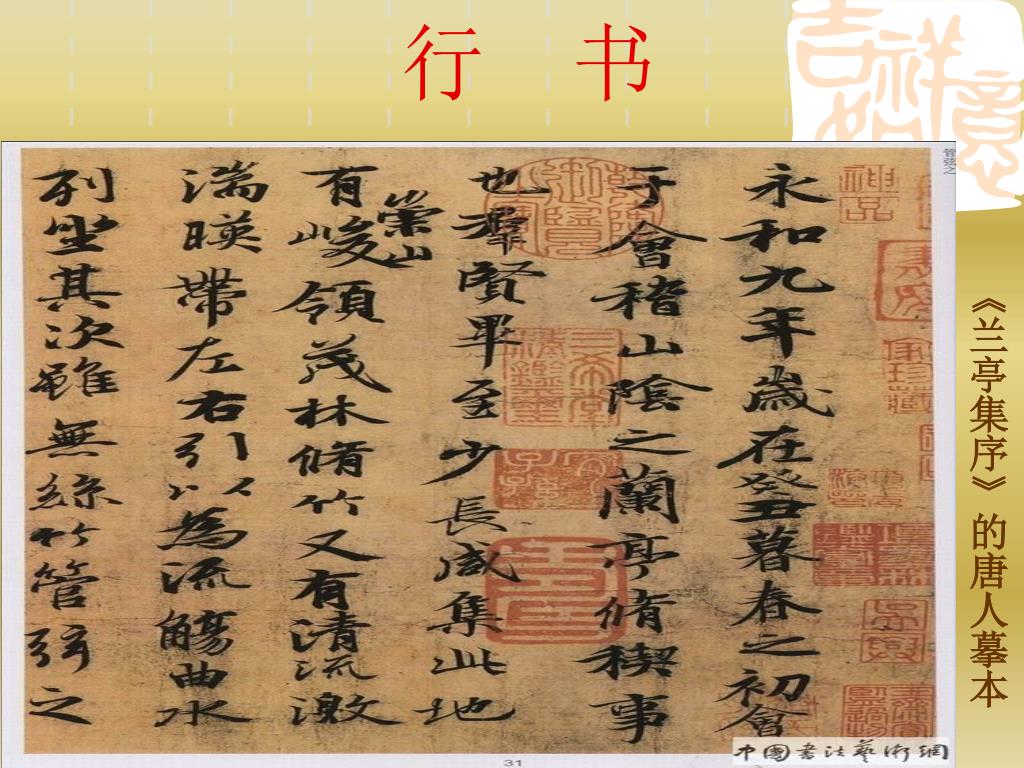 行 书
吉祥如意
管弦之
永和九年歲在癸丑暮春之初會
于會稽山陰之蘭亭脩稧事
也羣賢畢至少長咸集此地
有崇山峻領茂林脩竹又有清流激
湍暎帶左右引以為流觴曲水
列坐其次雖無絲竹管弦之
《兰亭集序》的唐人摹本
31
中國書法藝術網